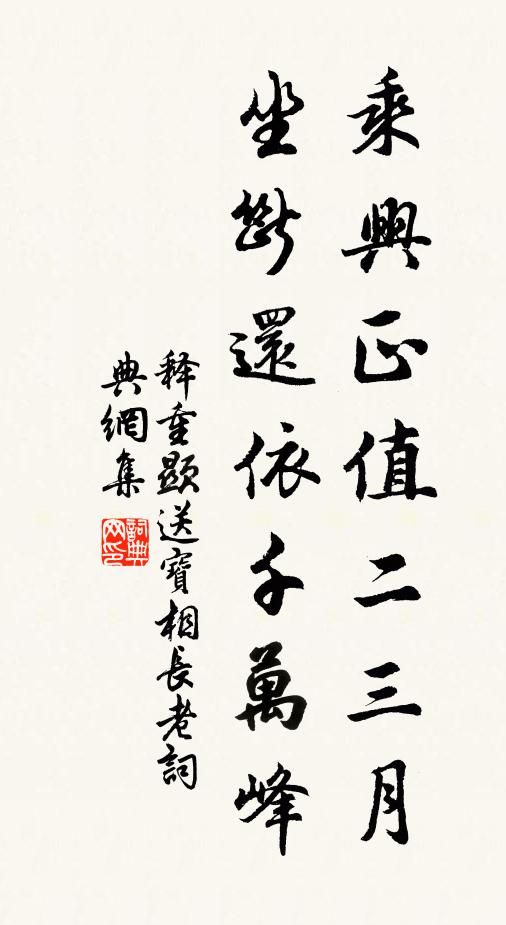 乘興正值二三月
坐斷還依千萬峰
釋重顯送寶相長老詞
典網集
詞典網印